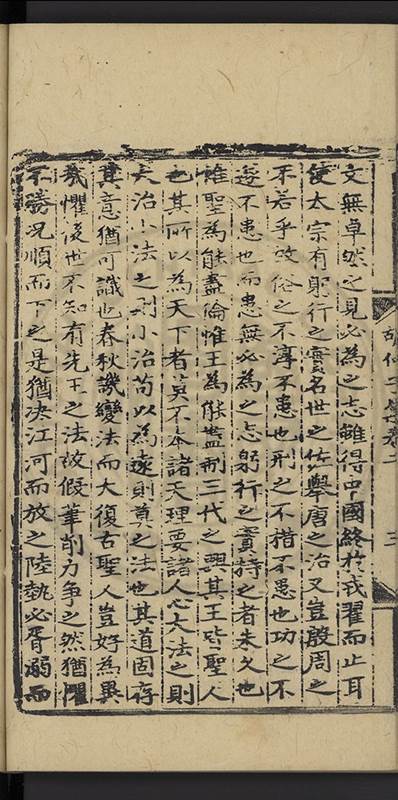 文無卓然之見必為之志雖得中國終於戎翟而止耳
使太宗有躬行之實名世之佐舉唐之治又豈殷周之
不若乎故俗之不淳不患也刑之不措不患也功之不
逮不患也而患無必為之志躬行之實持之者未久也
惟聖為能盡倫惟王為能盡制三代之興其王皆聖人
也其所以為天下者莫不本諸天理要諸人心大法之則
大治小法之則小治苟以為遠則莫之法也其道固存
其意猶可識也春秋譏變法而大復古聖人豈好為異
哉懼後世不知有先王之法故假筆削力爭之然猶懼
不勝况順而下之是猶决江河而放之陸埶必胥溺而
胡仲子集卷二
三